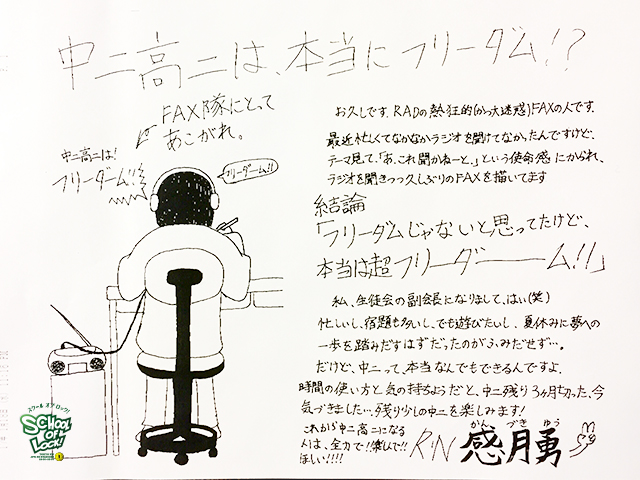 中二高二は、本当にフリーダム!?
FAX隊にとって
あこがれ。
中二高二は!
フリーダーム!!
フリーダーム!!
お久しです。RADの熱狂的(かつ大迷惑)FAXの人です。
最近忙しくてなかなかラジオを聞けてなかったんですけど、
テーマ見て、「あ、これ聞かねーと。」という使命感にかられ、
ラジオを聞きつつ久しぶりのFAXを描いてます
結論
「フリーダムじゃないと思ってたけど、
本当は超フリーダーーーム!!」
私、生徒会の副会長になりまして、はい(笑)
忙しいし、宿題も多いし、でも遊びたいし、夏休みに夢への
一歩を踏みだすはずだったのがふみだせず…。
だけど、中二って、本当なんでもできるんですよ。
時間の使い方と気の持ちようだと、中二残り3ヶ月切った、今
気づきました…。残り少しの中二を楽しみます!
これから中二高二になる
人は、全力で!!楽しんで!!
ほしい!!!!
RN 感月勇
かん づき ゆう
スクール オブ ロック!
SCHOOL OF LOCK!